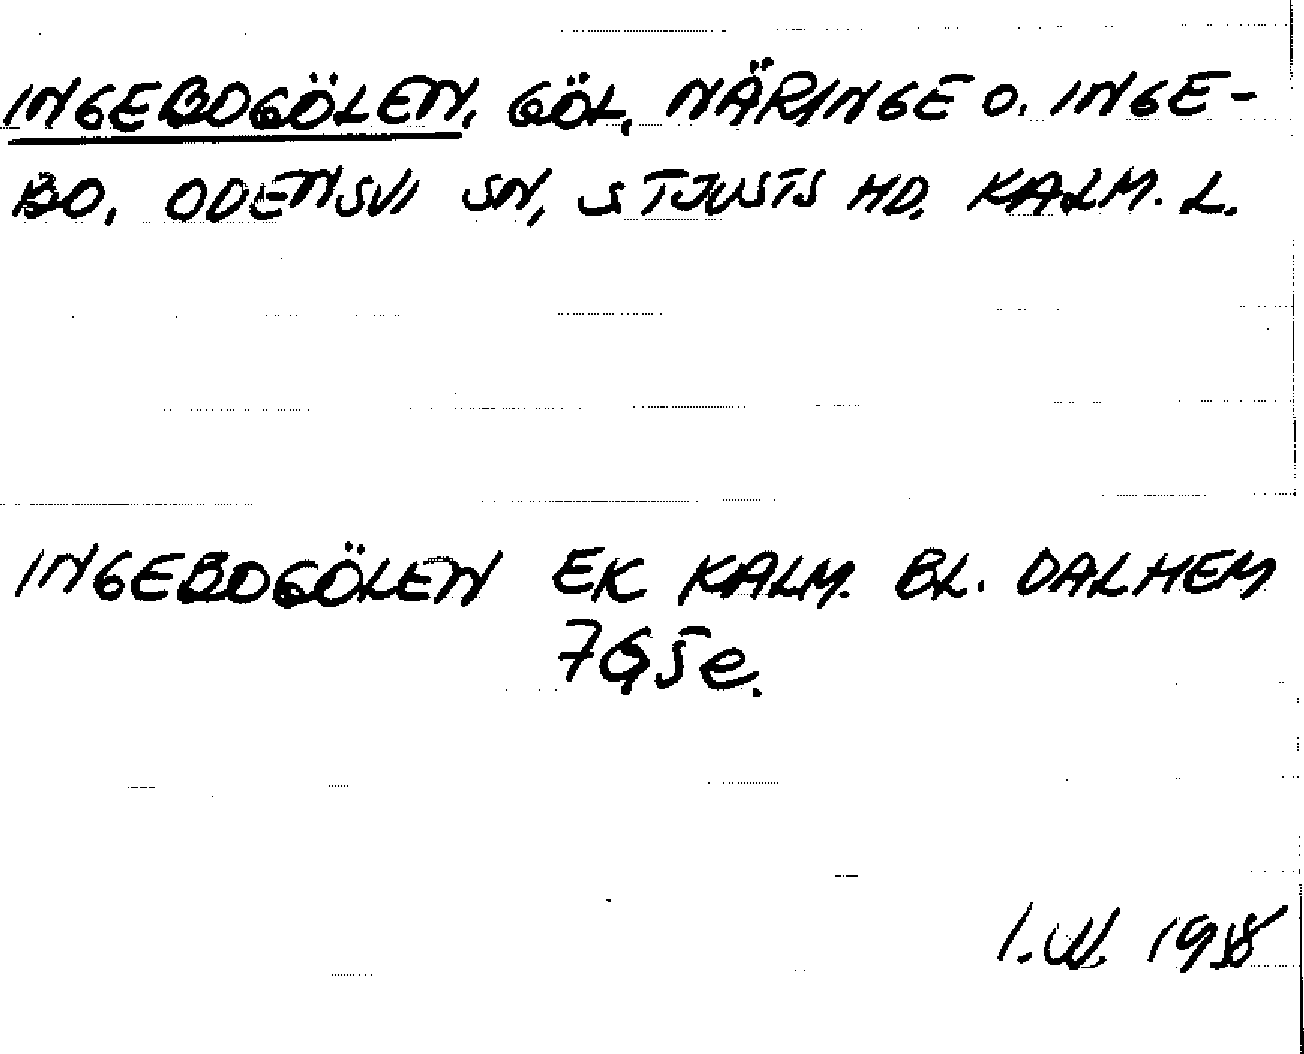 INGEBOGÖLEN, GÖL, NÄRINGE O. INGE-
BO, ODENSVI SN, S TJUSTS HD. KALM. L.
INGEBOGÖLEN EK KALM. BL. DALHEM
7G5e.
I.W. 1958